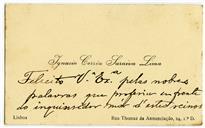 Ignacio Corrêa Saraiva Lima
Felicito V.ª Ex.ª pelas nobres
palavras que proferiu em frente
do inquisidor mór d'estes reinos
Lisboa
Rua Thomaz da Annunciação, 24, 2.º D.